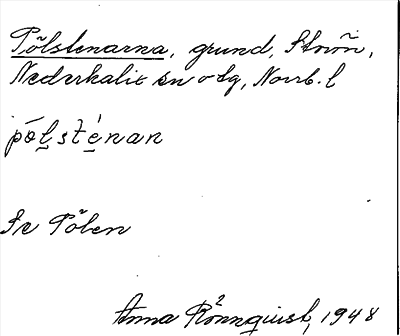 Pölstenarna, grund, Storön,
Nederkalix sn o tg, Norrb. l
pòl̠st́e̠nan
Se Pölen
Anna Rönnquist, 1948